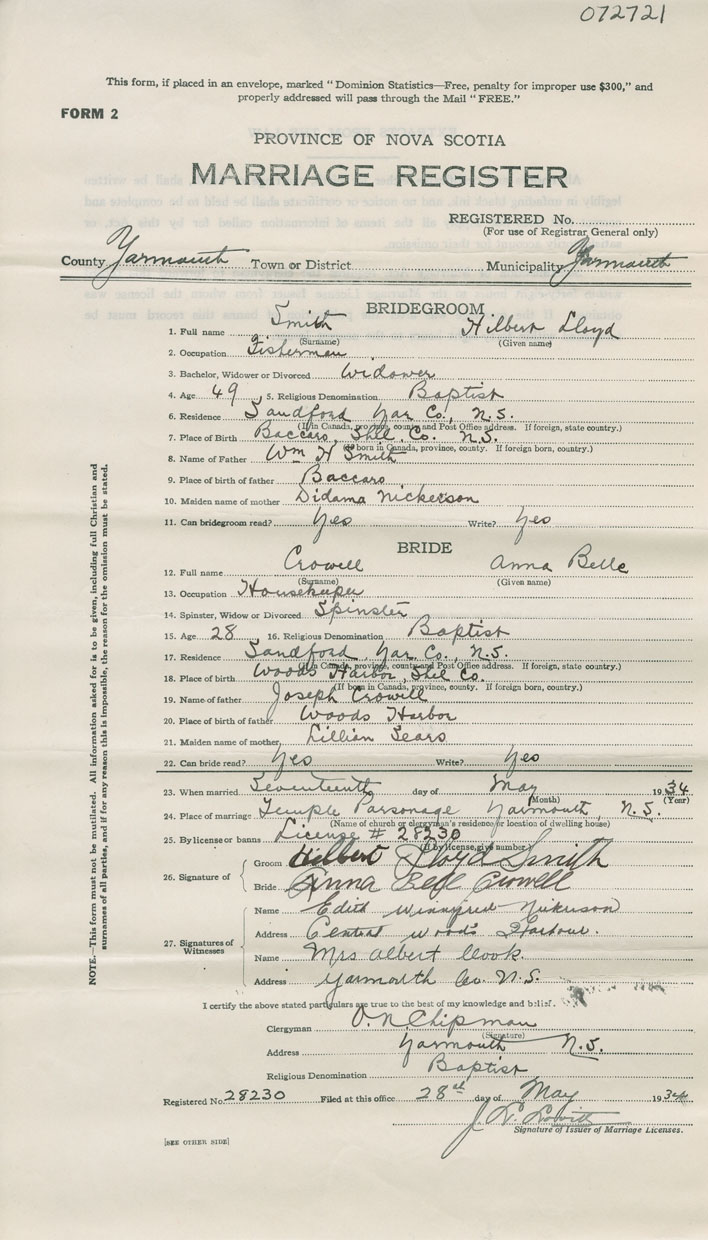 072721
This form, if placed in an envelope, marked "Dominion Statistics—Free, penalty for improper use $300," and
properly addressed will pass through the Mail "FREE."
FORM 2
PROVINCE OF NOVA SCOTIA
MARRIAGE REGISTER
REGISTERED No.
(For use of Registrar General only)
County Yarmouth Town or District Municipality Yarmouth
BRIDEGROOM
1. Full name Smith Hilbert Lloyd
(Surname) (Given name)
2. Occupation Fisherman
3. Bachelor, Widower or Divorced Widower
4. Age 49 5. Religious Denomination Baptist
6. Residence Sandford Yar Co., N.S.
(If in Canada, province, county and Post Office address. If foreign, state country.)
7. Place of Birth Baccaro, Shel. Co. N.S.
(If born in Canada, province, county. If foreign born, country.)
8. Name of Father Wm H Smith
9. Place of birth of father Baccaro
10. Maiden name of mother Didama Nickerson
11. Can bridegroom read? Yes Write? Yes
BRIDE
12. Full name Crowell Anna Belle
(Surname) (Given name)
13. Occupation Housekeeper
14. Spinster, Widow or Divorced Spinster
15. Age 28 16. Religious Denomination Baptist
17. Residence Sandford, Yar Co., N.S.
(If in Canada, province, county and Post Office address. If foreign, state country.)
18. Place of birth Woods Harbor, Shel Co.
(If born in Canada, province, county. If foreign born, country.)
19. Name of father Joseph Crowell
20. Place of birth of father Woods Harbor
21. Maiden name of mother Lillian Sears
22. Can bride read? Yes Write? Yes
23. When married Seventeenth day of May 1934
(Month) (Year)
24. Place of marriage Temple Parsonage Yarmouth, N.S.
(Name of church or clergyman's residence or location of dwelling house)
25. By license or banns License # 28230
(If by license, give number)
26. Signature of
Groom Hilbert Lloyd Smith
Bride Anna Belle Crowell
27. Signatures of Witnesses
Name Edith Winnyfred Nickerson
Address Central Woods Harbour.
Name Mrs Albert Cook.
Address Yarmouth Co. N.S.
I certify the above stated particulars are true to the best of my knowledge and belief.
Clergyman O. N. Chipman
(Signature)
Address Yarmouth N.S.
Religious Denomination Baptist
Registered No. 28230 Filed at this office 28th day of May 1934
Signature of Issuer of Marriage Licenses.
[SEE OTHER SIDE]
NOTE.—This form must not be mutilated. All information asked for is to be given, including full Christian and
surnames of all parties, and if for any reason this is impossible, the reason for the omission must be stated.